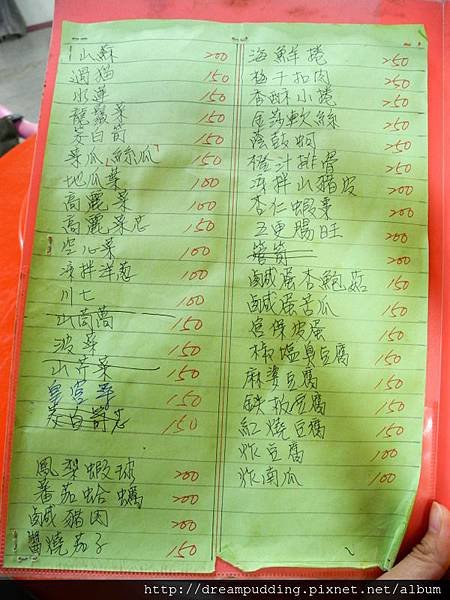 山蘇 200
過貓 150
水蓮 150
龍鬚菜 150
茭白筍 150
菜瓜「絲瓜」 150
地瓜葉 100
高麗菜 100
高麗菜芯 150
空心菜 100
涼拌洋蔥 100
川七 100
山茼蒿 150
菠菜 150
山芹菜 150
皇宮菜 150
茭白筍芯 150
鳳梨蝦球 200
蕃茄蛤蠣 200
鹹豬肉 200
醬燒茄子 150
海鮮捲 250
梅干扣肉 250
香酥小捲 250
金莎軟絲 250
蔭豉蚵 250
橙汁排骨 250
涼拌山豬皮 200
杏仁蝦果 200
五更腸旺 200
箭筍 200
鹹蛋杏鮑菇 150
鹹蛋苦瓜 150
宮保皮蛋 150
椒塩臭豆腐 150
麻婆豆腐 150
鉄板豆腐 150
紅燒豆腐 150
炸豆腐 100
炸南瓜 100
http://dreampudding.pixnet.net/album